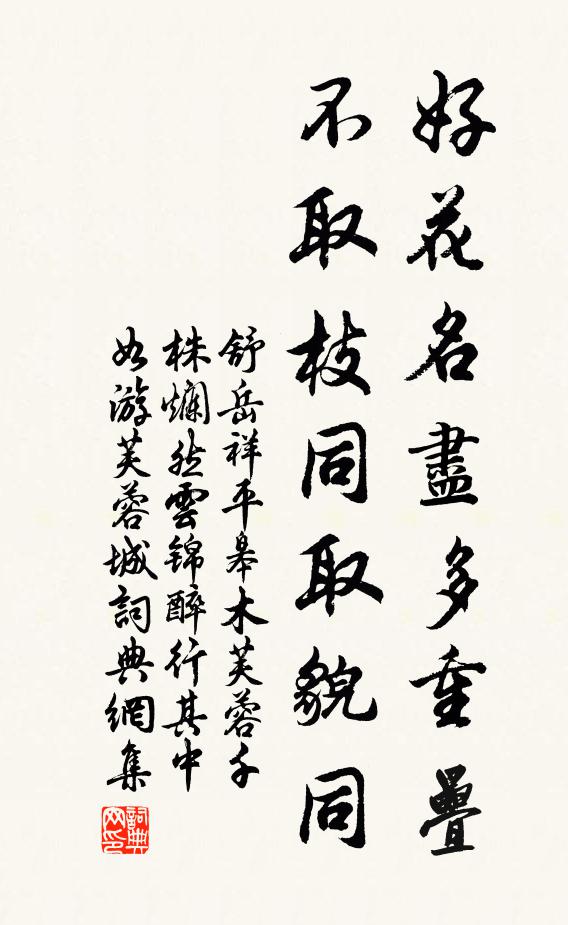 好花名盡多重疊
不取枝同取貌同
舒岳祥平皋木芙蓉千
株爛然雲錦醉行其中
如游芙蓉城詞典網集
詞典
网印